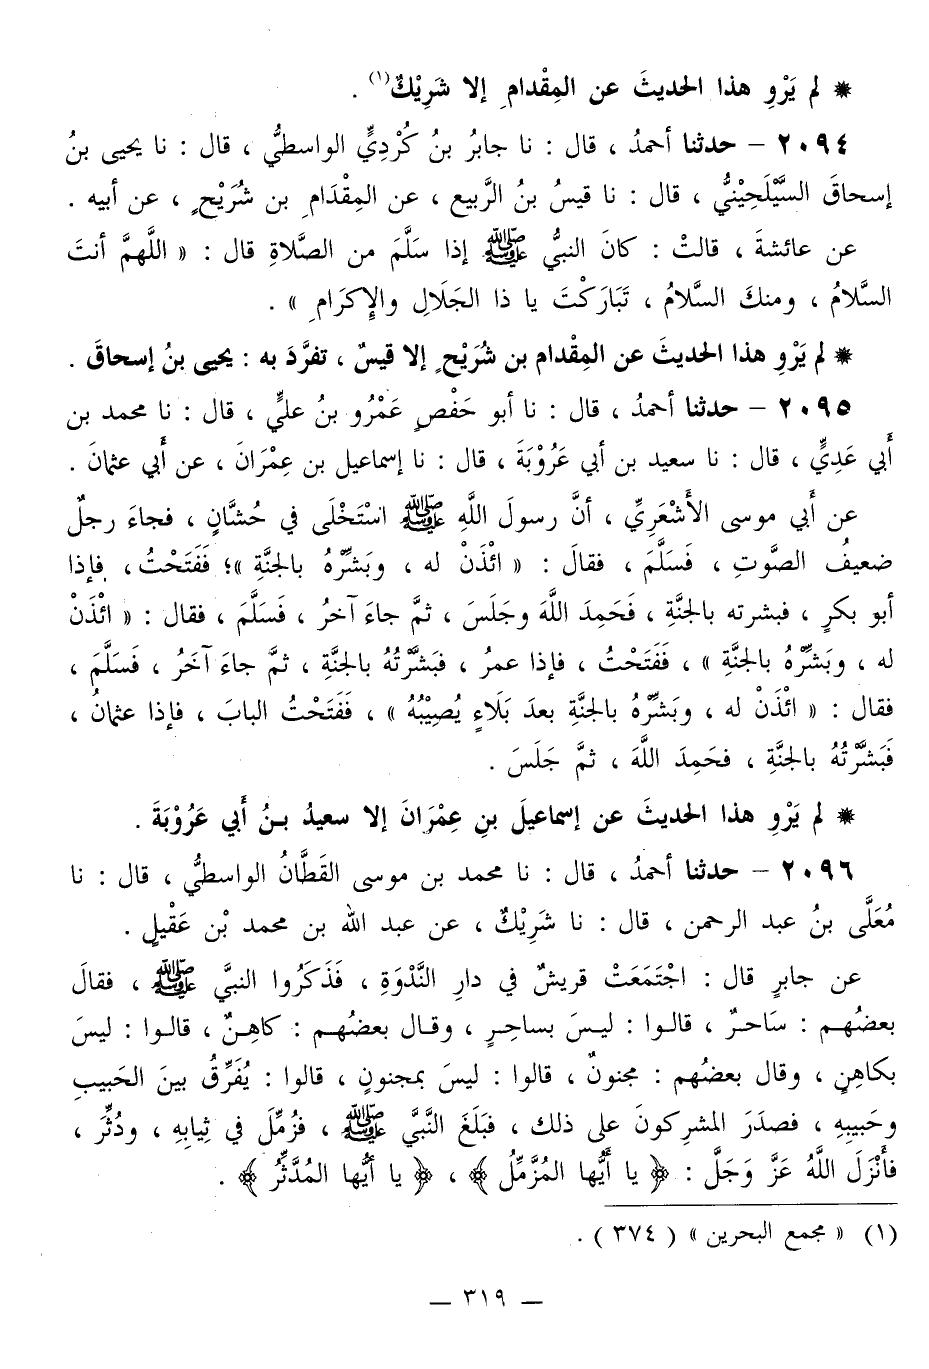 * لم يَرْوِ هذا الحديثَ عن المِقْدامِ إلا شَرِيْكٌ(١) .
٢٠٩٤ – حدثنا أحمدُ ، قال : نا جابرُ بنُ كُرْدِيٍّ الواسطيُّ ، قال : نا يحيى بنُ
إسحاقَ السَّيْلَحِيْنيُّ ، قال : نا قيسُ بنُ الرَّبيع ، عن المِقْدَامِ بن شُرَيْحٍ ، عن أبيه .
عن عائشةَ ، قالتْ : كانَ النبيُّ ﷺ إذا سَلَّمَ من الصَّلاةِ قال : « اللَّهمَّ أنتَ
السَّلامُ ، ومنكَ السَّلامُ ، تَبَارَكْتَ يا ذا الجَلَالِ والإِكرَامِ » .
* لم يَرْوِ هذا الحديثَ عن المِقْدام بن شُرَيْحٍ إلا قيسٌ ، تفرَّدَ به : يحيى بنُ إسحاقَ .
٢٠٩٥ – حدثنا أحمدُ ، قال : نا أبو حَفْصٍ عَمْرُو بنُ عليٍّ ، قال : نا محمد بن
أَبي عَدِيٍّ ، قال : نا سعيد بن أبي عَرُوْبَةَ ، قال : نا إسماعيل بن عِمْرَانَ ، عن أبي عثمانَ .
عن أَبي موسى الأَشْعَرِيِّ ، أنَّ رسولَ اللَّهِ ﷺ اسْتَخْلَى في حُشَّانٍ ، فجاءَ رجلٌ
ضعيفُ الصَّوتِ ، فَسَلَّمَ ، فقالَ : « ائْذَنْ له ، وبَشِّرْهُ بالجنَّةِ »؛ فَفَتَحْتُ ، فإذا
أبو بكرٍ ، فبشرته بالجنَّةِ ، فَحَمِدَ اللَّهَ وجَلَسَ ، ثمَّ جاءَ آخرُ ، فَسَلَّمَ ، فقال : « ائْذَنْ
له ، وبَشِّرْهُ بالجنَّةِ » ، فَفَتَحْتُ ، فإذا عمرُ ، فبَشَّرْتُهُ بالجنَّةِ ، ثمَّ جاءَ آخَرُ ، فَسَلَّمَ ،
فقال : « ائْذَنْ له ، وبَشِّرْهُ بالجنَّةِ بعدَ بَلَاءٍ يُصِيْبُهُ » ، فَفَتَحْتُ البابَ ، فإذا عثمانُ ،
فَبَشَّرْتُهُ بالجنَّةِ ، فحَمِدَ اللَّهَ ، ثمَّ جَلَسَ .
* لم يَرْوِ هذا الحديثَ عن إسماعيلَ بنِ عِمْرَانَ إلا سعيدُ بنُ أَبي عَرُوْبَةَ .
٢٠٩٦ – حدثنا أحمدُ ، قال : نا محمد بن موسى القَطَّانُ الواسطيُّ ، قال : نا
مُعَلَّى بنُ عبد الرحمن ، قال : نا شَرِيْكٌ ، عن عبد الله بن محمد بْن عَقْيلٍ .
عن جابرٍ قال : اجْتَمَعَتْ قريشٌ في دارِ النَّدْوَةِ ، فَذَكَرُوا النبيَّ ﷺ ، فقالَ
بعضُهم : سَاحرٌ ، قالوا : ليسَ بساحِرٍ ، وقال بعضُهم : كاهِنٌ ، قالوا : ليسَ
بكاهِنٍ ، وقال بعضُهم : مجنونٌ ، قالوا : ليسَ بمجنونٍ ، قالوا : يُفَرِّقُ بينَ الحَبيبِ
وحَبيبِهِ ، فصدَرَ المشركونَ على ذلك ، فبَلَغَ النَّبيَّ ﷺ ، فزُمِّلَ في ثِيابِهِ ، ودُثِّرَ ،
فأَنْزَلَ اللَّهُ عَزَّ وَجَلَّ : ﴿ يا أَيُّها المُزَّمِّلُ ﴾ ، ﴿ يا أَيُّها المُدَّثِّرُ ﴾ .
(١) « مجمع البحرين » ( ٣٧٤ ) .
– ٣١٩ –